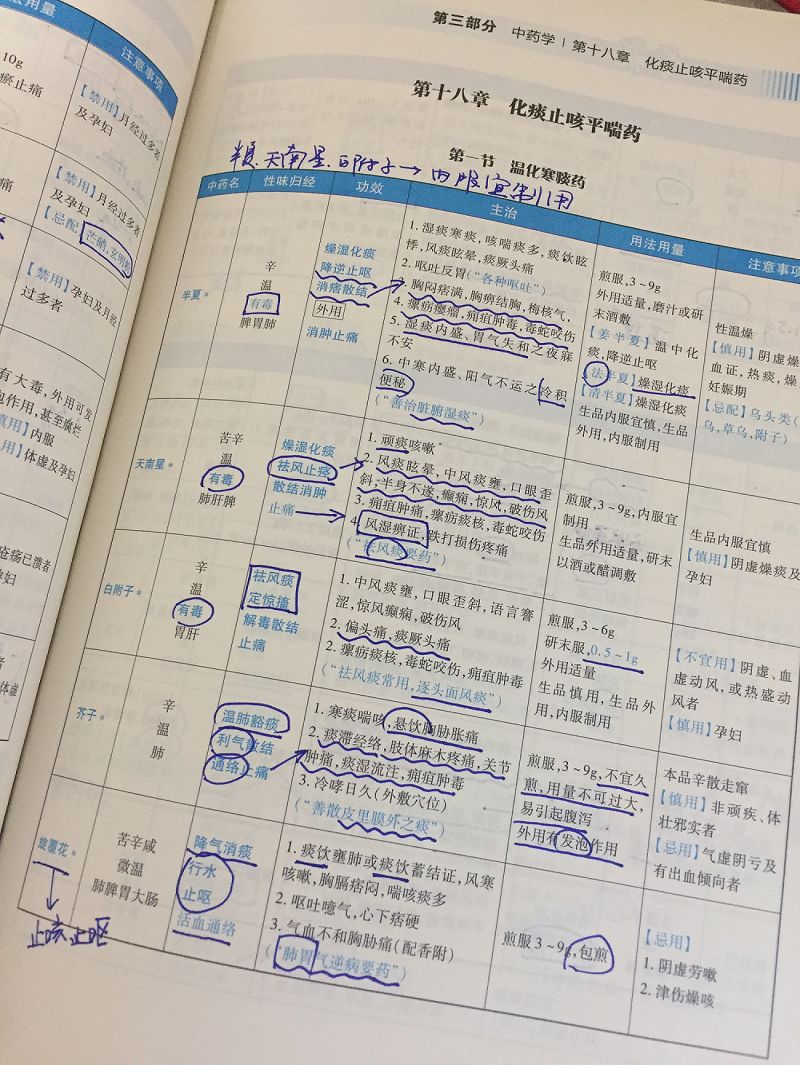 法用量
注意事项
10g
瘀止痛
【禁用】月经过多者
及孕妇
痛
【禁用】月经过多者
及孕妇
【忌配】芒硝、玄明粉
【禁用】孕妇及月经
过多者
有大毒，外用可发
泡作用，甚至腐烂
慎用】内服
用】体虚及孕妇
疮疡已溃者
孕妇
体虚
第三部分 中药学｜第十八章 化痰止咳平喘药
第十八章 化痰止咳平喘药
第一节 温化寒痰药
半夏、天南星、白附子→内服宜制用
中药名
性味归经
功效
主治
用法用量
注意事项
半夏*
辛
温
有毒
脾胃肺
燥湿化痰
降逆止呕
消痞散结
外用
消肿止痛
1. 湿痰寒痰，咳喘痰多，痰饮眩
悸，风痰眩晕，痰厥头痛
2. 呕吐反胃（“各种呕吐”）
3. 胸闷痞满，胸痹结胸，梅核气，
4. 瘰疬瘿瘤，痈疽肿毒，毒蛇咬伤
5. 湿痰内盛、胃气失和之夜寐
不安
6. 中寒内盛、阳气不运之冷积
便秘
（“善治脏腑湿痰”）
煎服，3~9g
外用适量，磨汁或研
末酒敷
【姜半夏】温中化
痰，降逆止呕
【法半夏】燥湿化痰
【清半夏】燥湿化痰
生品内服宜慎，生品
外用，内服制用
性温燥
【慎用】阴虚燥
血证，热痰，燥
妊娠期
【忌配】乌头类（
乌，草乌，附子）
天南星*
苦辛
温
有毒
肺肝脾
燥湿化痰
祛风止痉
散结消肿
止痛
1. 顽痰咳嗽
2. 风痰眩晕，中风痰壅，口眼歪
斜，半身不遂，癫痫，惊风，破伤风
3. 痈疽肿痛，瘰疬痰核，毒蛇咬伤
4. 风湿痹证，跌打损伤疼痛
（“祛风痰要药”）
煎服，3~9g，内服宜
制用
生品外用适量，研末
以酒或醋调敷
生品内服宜慎
【慎用】阴虚燥痰及
孕妇
白附子*
辛
温
有毒
胃肝
祛风痰
定惊搐
解毒散结
止痛
1. 中风痰壅，口眼歪斜，语言謇
涩，惊风癫痫，破伤风
2. 偏头痛，痰厥头痛
2. 瘰疬痰核，毒蛇咬伤，痈疽肿毒
（“祛风痰常用，逐头面风痰”）
煎服，3~6g
研末服，0.5~1g
外用适量
生品慎用，生品外
用，内服制用
【不宜用】阴虚、血
虚动风，或热盛动
风者
【慎用】孕妇
芥子*
辛
温
肺
温肺豁痰
利气散结
通络止痛
1. 寒痰喘咳，悬饮胸胁胀痛
2. 痰滞经络，肢体麻木疼痛，关节
肿痛，痰湿流注，痈疽肿毒
3. 冷哮日久（外敷穴位）
（“善散皮里膜外之痰”）
煎服，3~9g，不宜久
煎，用量不可过大，
易引起腹泻
外用有发泡作用
本品辛散走窜
【慎用】非顽疾、体
壮邪实者
【忌用】气虚阴亏及
有出血倾向者
旋覆花*
苦辛咸
微温
肺脾胃大肠
降气消痰
行水
止呕
活血通络
1. 痰饮壅肺或痰饮蓄结证，风寒
咳嗽，胸膈痞闷，喘咳痰多
2. 呕吐噫气，心下痞硬
3. 气血不和胸胁痛（配香附）
（“肺胃气逆病要药”）
煎服3~9g，包煎
【忌用】
1. 阴虚劳嗽
2. 津伤燥咳
止咳止呕